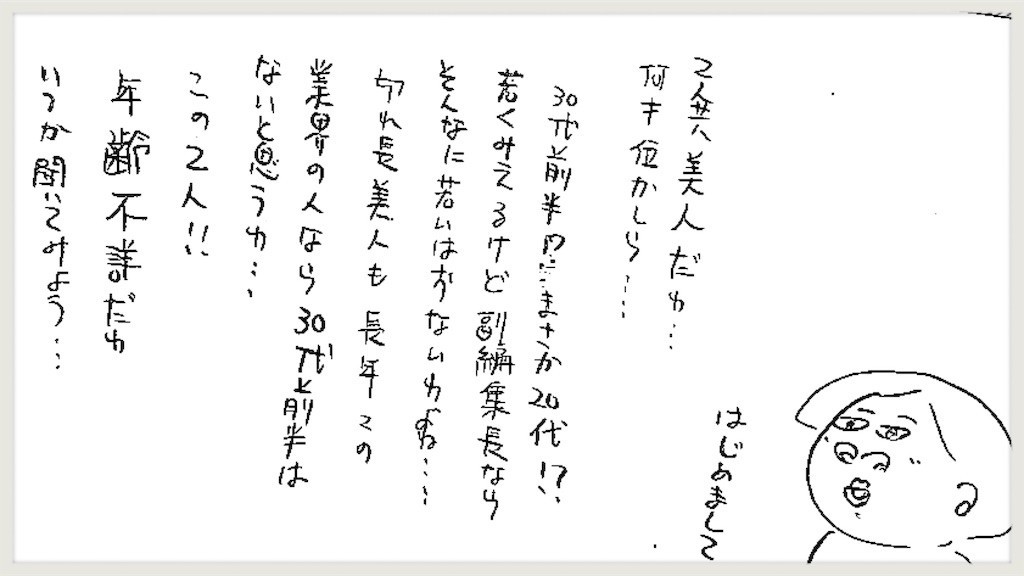 2人共美人だわ…
何才位かしら……
30代前半?まさか20代!?
若くみえるけど副編集長なら
そんなに若いはずないわよね……
切れ長美人も長年この
業界の人なら30代前半は
ないと思うわ…
この2人!!
年齢不詳だわ
いつか聞いてみよう…
はじめまして